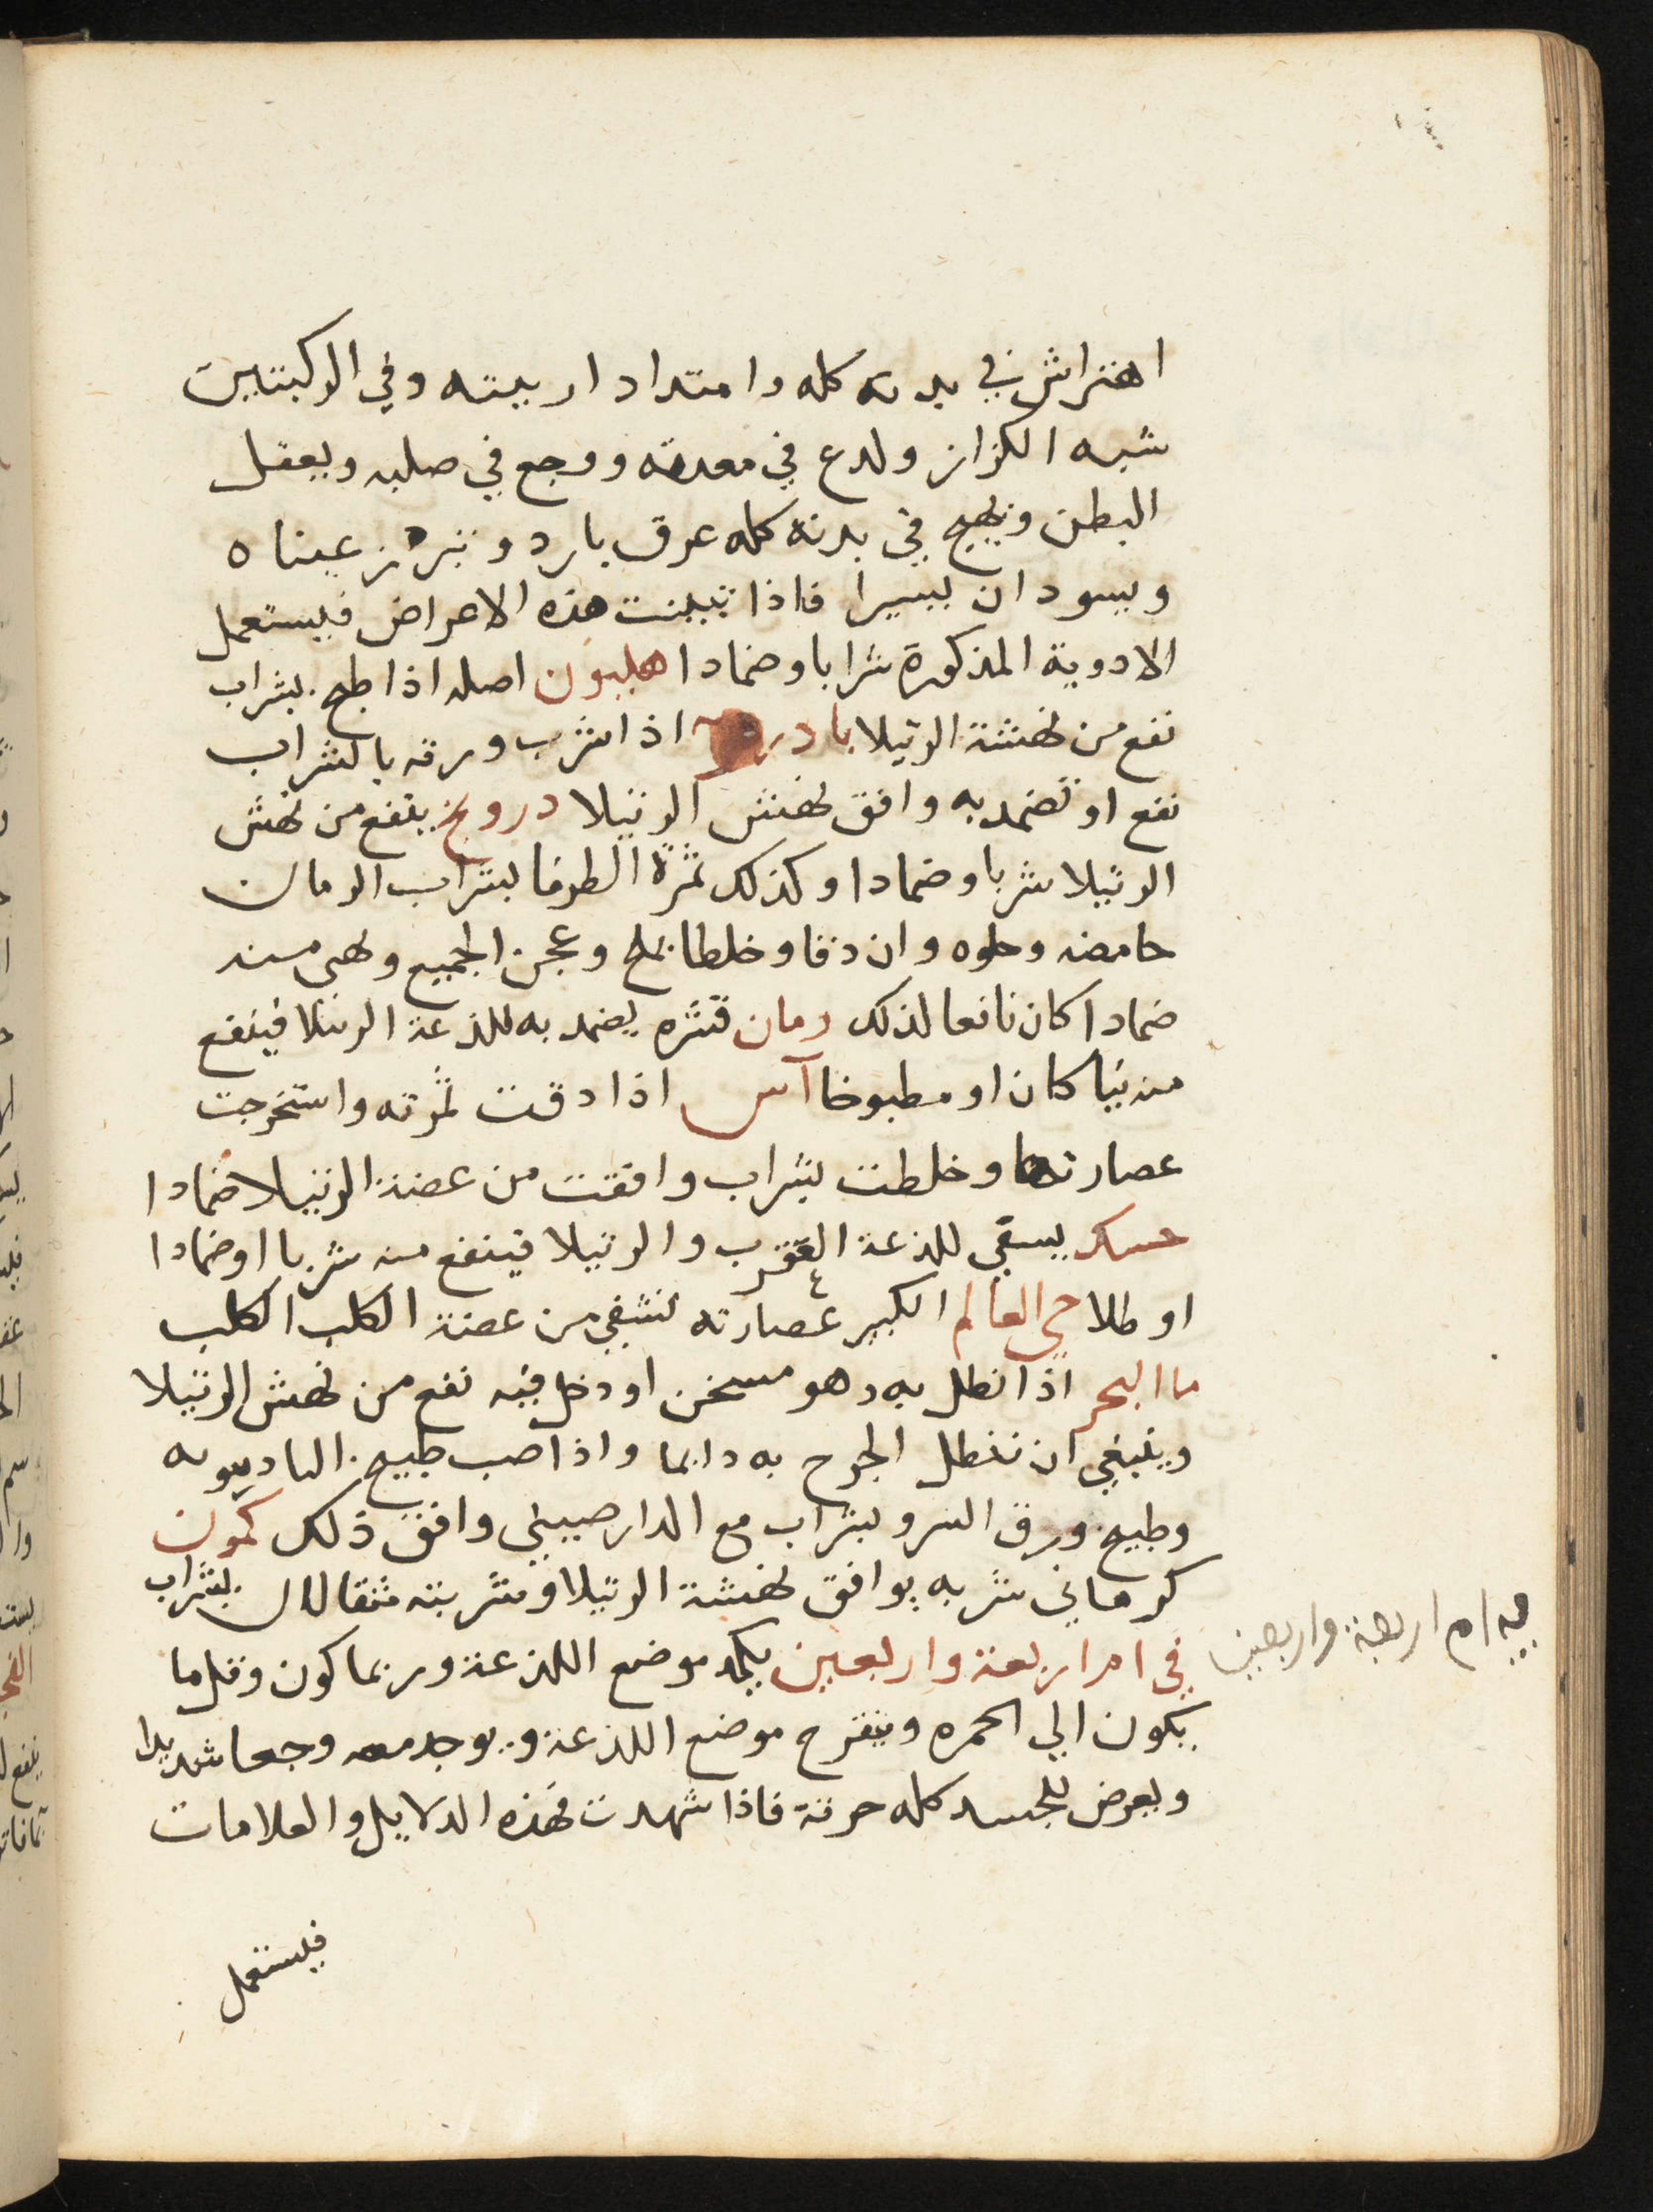 اهتراش في بدنه كله وامتداد اربيته وفي الركبتين
شبه الكزاز ولدع في معدته ووجع في صلبه ويعقل
البطن ويهيج في بدنه كله عرق بارد وتبرز عيناه
ويسودان يسيرا فاذا تبينت هذه الاعراض فيستعمل
الادوية المذكورة شرابا وضمادا هليون اصله اذا طبخ بشراب
نفع من نهشة الرتيلا اذا شرب ورقه بالشراب
نفع او تضمد به وافق نهش الرتيلا درونج ينفع من نهش
الرتيلا شربا وضمادا وكذلك ثمرة الطرفا بشراب الرمان
حامضه وحلوه وان دقا وخلطا بملح وعجن الجميع وهي منه
ضمادا كان نافعا لذلك رمان قشره يضمد به للذعة الرتيلا فينفع
منه نيا كان او مطبوخا آس اذا دقت ثمرته واستخرجت
عصارتها وخلطت بشراب وافقت من عضة الرتيلا ضمادا
حسك يسقي للذعة العقرب والرتيلا فينفع منه شربا او ضمادا
او طلا حي العالم الكبير عصارته تشفي من عضة الكلب الكلب
ما البحر اذا نطل به وهو مسخن او دخل فيه نفع من نهش الرتيلا
وينبغي ان تنطل الجرح به دايما واذا صب طبيخ
وطبيخ ورق السرو بشراب مع الدارصيني وافق ذلك كمون
كرماني شربه يوافق نهشة الرتيلا وشربته مثقالان بشراب
في ام اربعة واربعين يكمد موضع اللذعة وربما كون وقل ما
يكون الي الحمره ويتقرح موضع اللذعة ويوجد معه وجعا شديدا
ويعرض للجسد كله حرقة فاذا شهدت فهذه الدلايل والعلامات
فليستعمل
ام اربعة واربعين